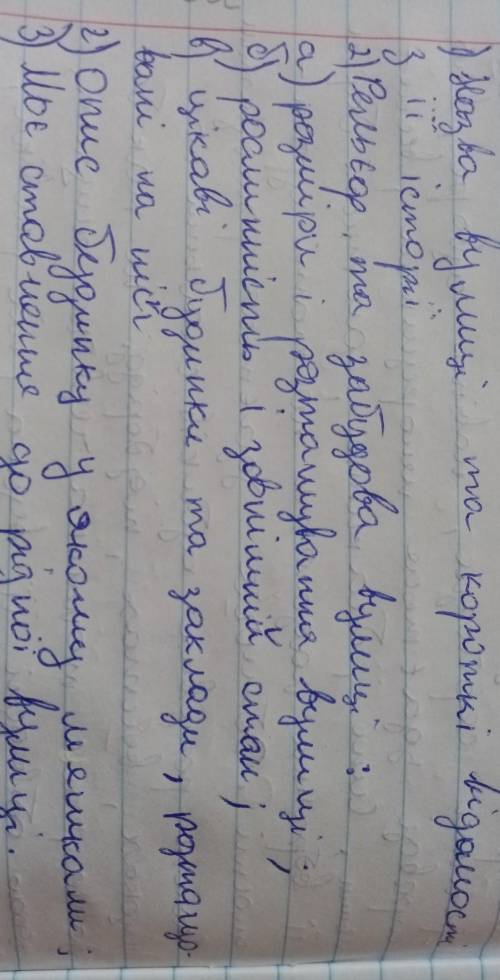 1) Назва вулиці та короткі відомості
з її історії
2) Рельєф та забудова вулиці:
а) розміри і розташування вулиці;
б) рослинність і зовнішній стан;
в) цікаві будинки та заклади, розташо-
вані на ній
г) Опис будинку у якому мешкаю;
3) Моє ставлення до рідної вулиці.